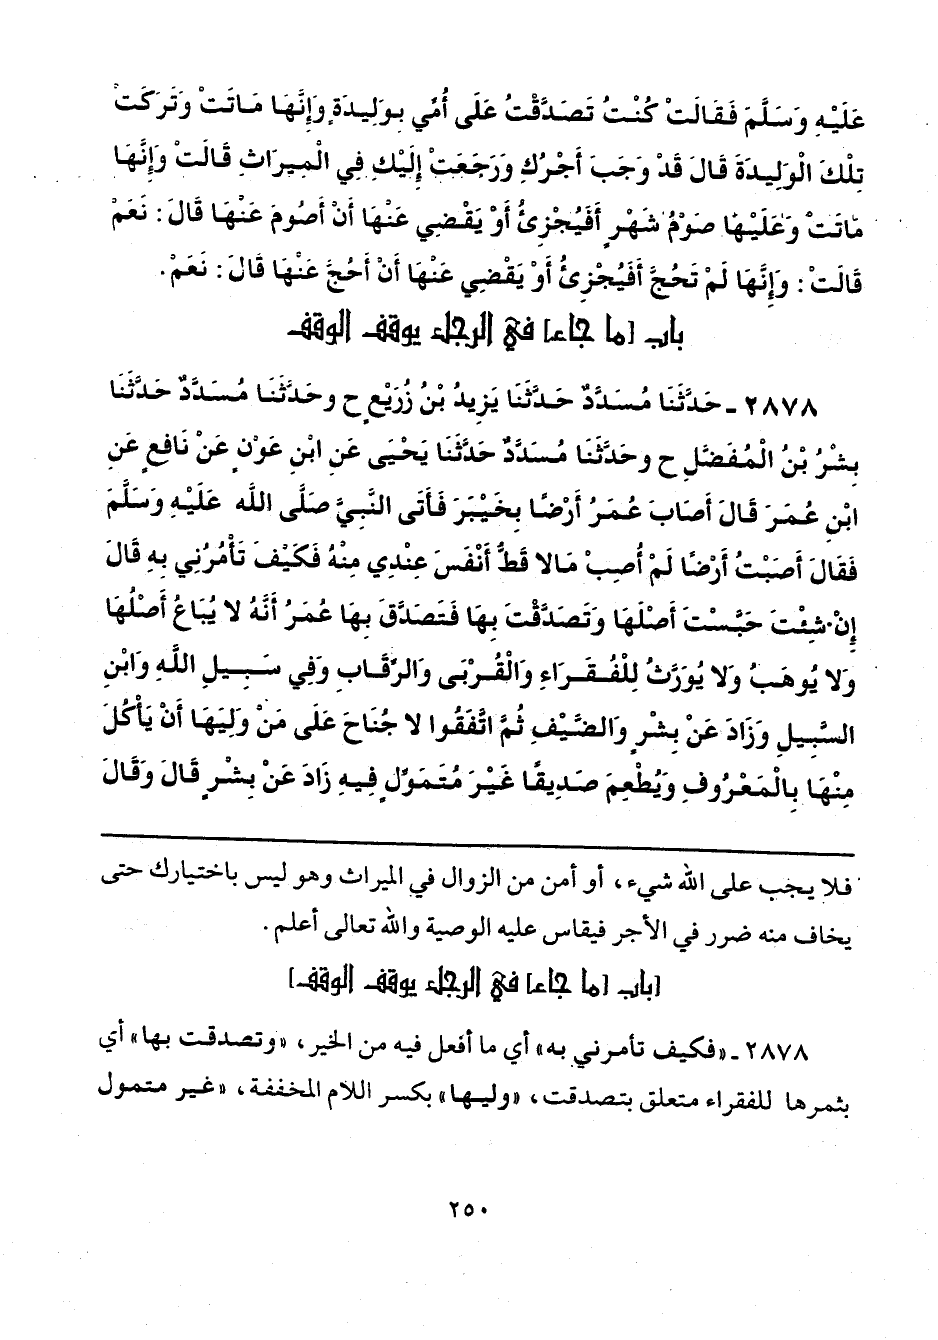 عَلَيْهِ وَسَلَّمَ فَقَالَتْ كُنْتُ تَصَدَّقْتُ عَلَى أُمِّي بِوَلِيدَةٍ وَإِنَّهَا مَاتَتْ وَتَرَكَتْ
تِلْكَ الْوَلِيدَةَ قَالَ قَدْ وَجَبَ أَجْرُكِ وَرَجَعَتْ إِلَيْكِ فِي الْمِيرَاثِ قَالَتْ وَإِنَّهَا
مَاتَتْ وَعَلَيْهَا صَوْمُ شَهْرٍ أَفَيُجْزِئُ أَوْ يَقْضِي عَنْهَا أَنْ أَصُومَ عَنْهَا قَالَ: نَعَمْ
قَالَتْ: وَإِنَّهَا لَمْ تَحُجَّ أَفَيُجْزِئُ أَوْ يَقْضِي عَنْهَا أَنْ أَحُجَّ عَنْهَا قَالَ: نَعَمْ.
باب [ما جاء] في الرجل يوقف الوقف
٢٨٧٨ ـ حَدَّثَنَا مُسَدَّدٌ حَدَّثَنَا يَزِيدُ بْنُ زُرَيْعٍ ح وحَدَّثَنَا مُسَدَّدٌ حَدَّثَنَا
بِشْرُ بْنُ الْمُفَضَّلِ ح وحَدَّثَنَا مُسَدَّدٌ حَدَّثَنَا يَحْيَى عَنِ ابْنِ عَوْنٍ عَنْ نَافِعٍ عَنِ
ابْنِ عُمَرَ قَالَ أَصَابَ عُمَرُ أَرْضًا بِخَيْبَرَ فَأَتَى النَّبِيَّ صَلَّى اللَّه عَلَيْهِ وَسَلَّمَ
فَقَالَ أَصَبْتُ أَرْضًا لَمْ أُصِبْ مَالا قَطُّ أَنْفَسَ عِنْدِي مِنْهُ فَكَيْفَ تَأْمُرُنِي بِهِ قَالَ
إِنْ شِئْتَ حَبَّسْتَ أَصْلَهَا وَتَصَدَّقْتَ بِهَا فَتَصَدَّقَ بِهَا عُمَرُ أَنَّهُ لا يُبَاعُ أَصْلُهَا
وَلا يُوهَبُ وَلا يُوَرَّثُ لِلْفُقَرَاءِ وَالْقُرْبَى وَالرِّقَابِ وَفِي سَبِيلِ اللَّهِ وَابْنِ
السَّبِيلِ وَزَادَ عَنْ بِشْرٍ وَالضَّيْفِ ثُمَّ اتَّفَقُوا لا جُنَاحَ عَلَى مَنْ وَلِيَهَا أَنْ يَأْكُلَ
مِنْهَا بِالْمَعْرُوفِ وَيُطْعِمَ صَدِيقًا غَيْرَ مُتَمَوِّلٍ فِيهِ زَادَ عَنْ بِشْرٍ قَالَ وَقَالَ
فلا يجب على الله شيء، أو أمن من الزوال في الميراث وهو ليس باختيارك حتى
يخاف منه ضرر في الأجر فيقاس عليه الوصية والله تعالى أعلم.
[باب [ما جاء] في الرجل يوقف الوقف]
٢٨٧٨ ـ «فكيف تأمرني به» أي ما أفعل فيه من الخير، «وتصدقت بها» أي
بثمرها للفقراء متعلق بتصدقت، «وليها» بكسر اللام المخففة، «غير متمول
٢٥٠